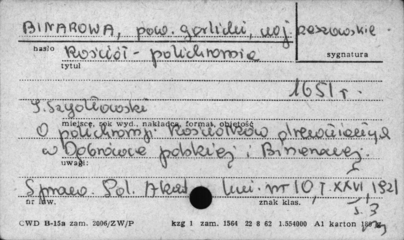 BINAROWA, pow. gorlicki, woj. rzeszowskie
hasło
Kościół - polichromia
sygnatura
tytuł
1651 r.
S. Szydłowski
miejsce, rok wyd., nakładca, format, objętość
O polichromji Kościółków drewnianych
w Dębnówce polskiej i Binarowej.
uwagi:
Spraw. Pol. Akad. Um. nr 10, T. XXVI, 1921
nr inw.
znak klas.
s. 3
CWD B-15a zam. 2006/ZW/P
kzg 1 zam. 1564 22 8 62 1.554000 A1 karton